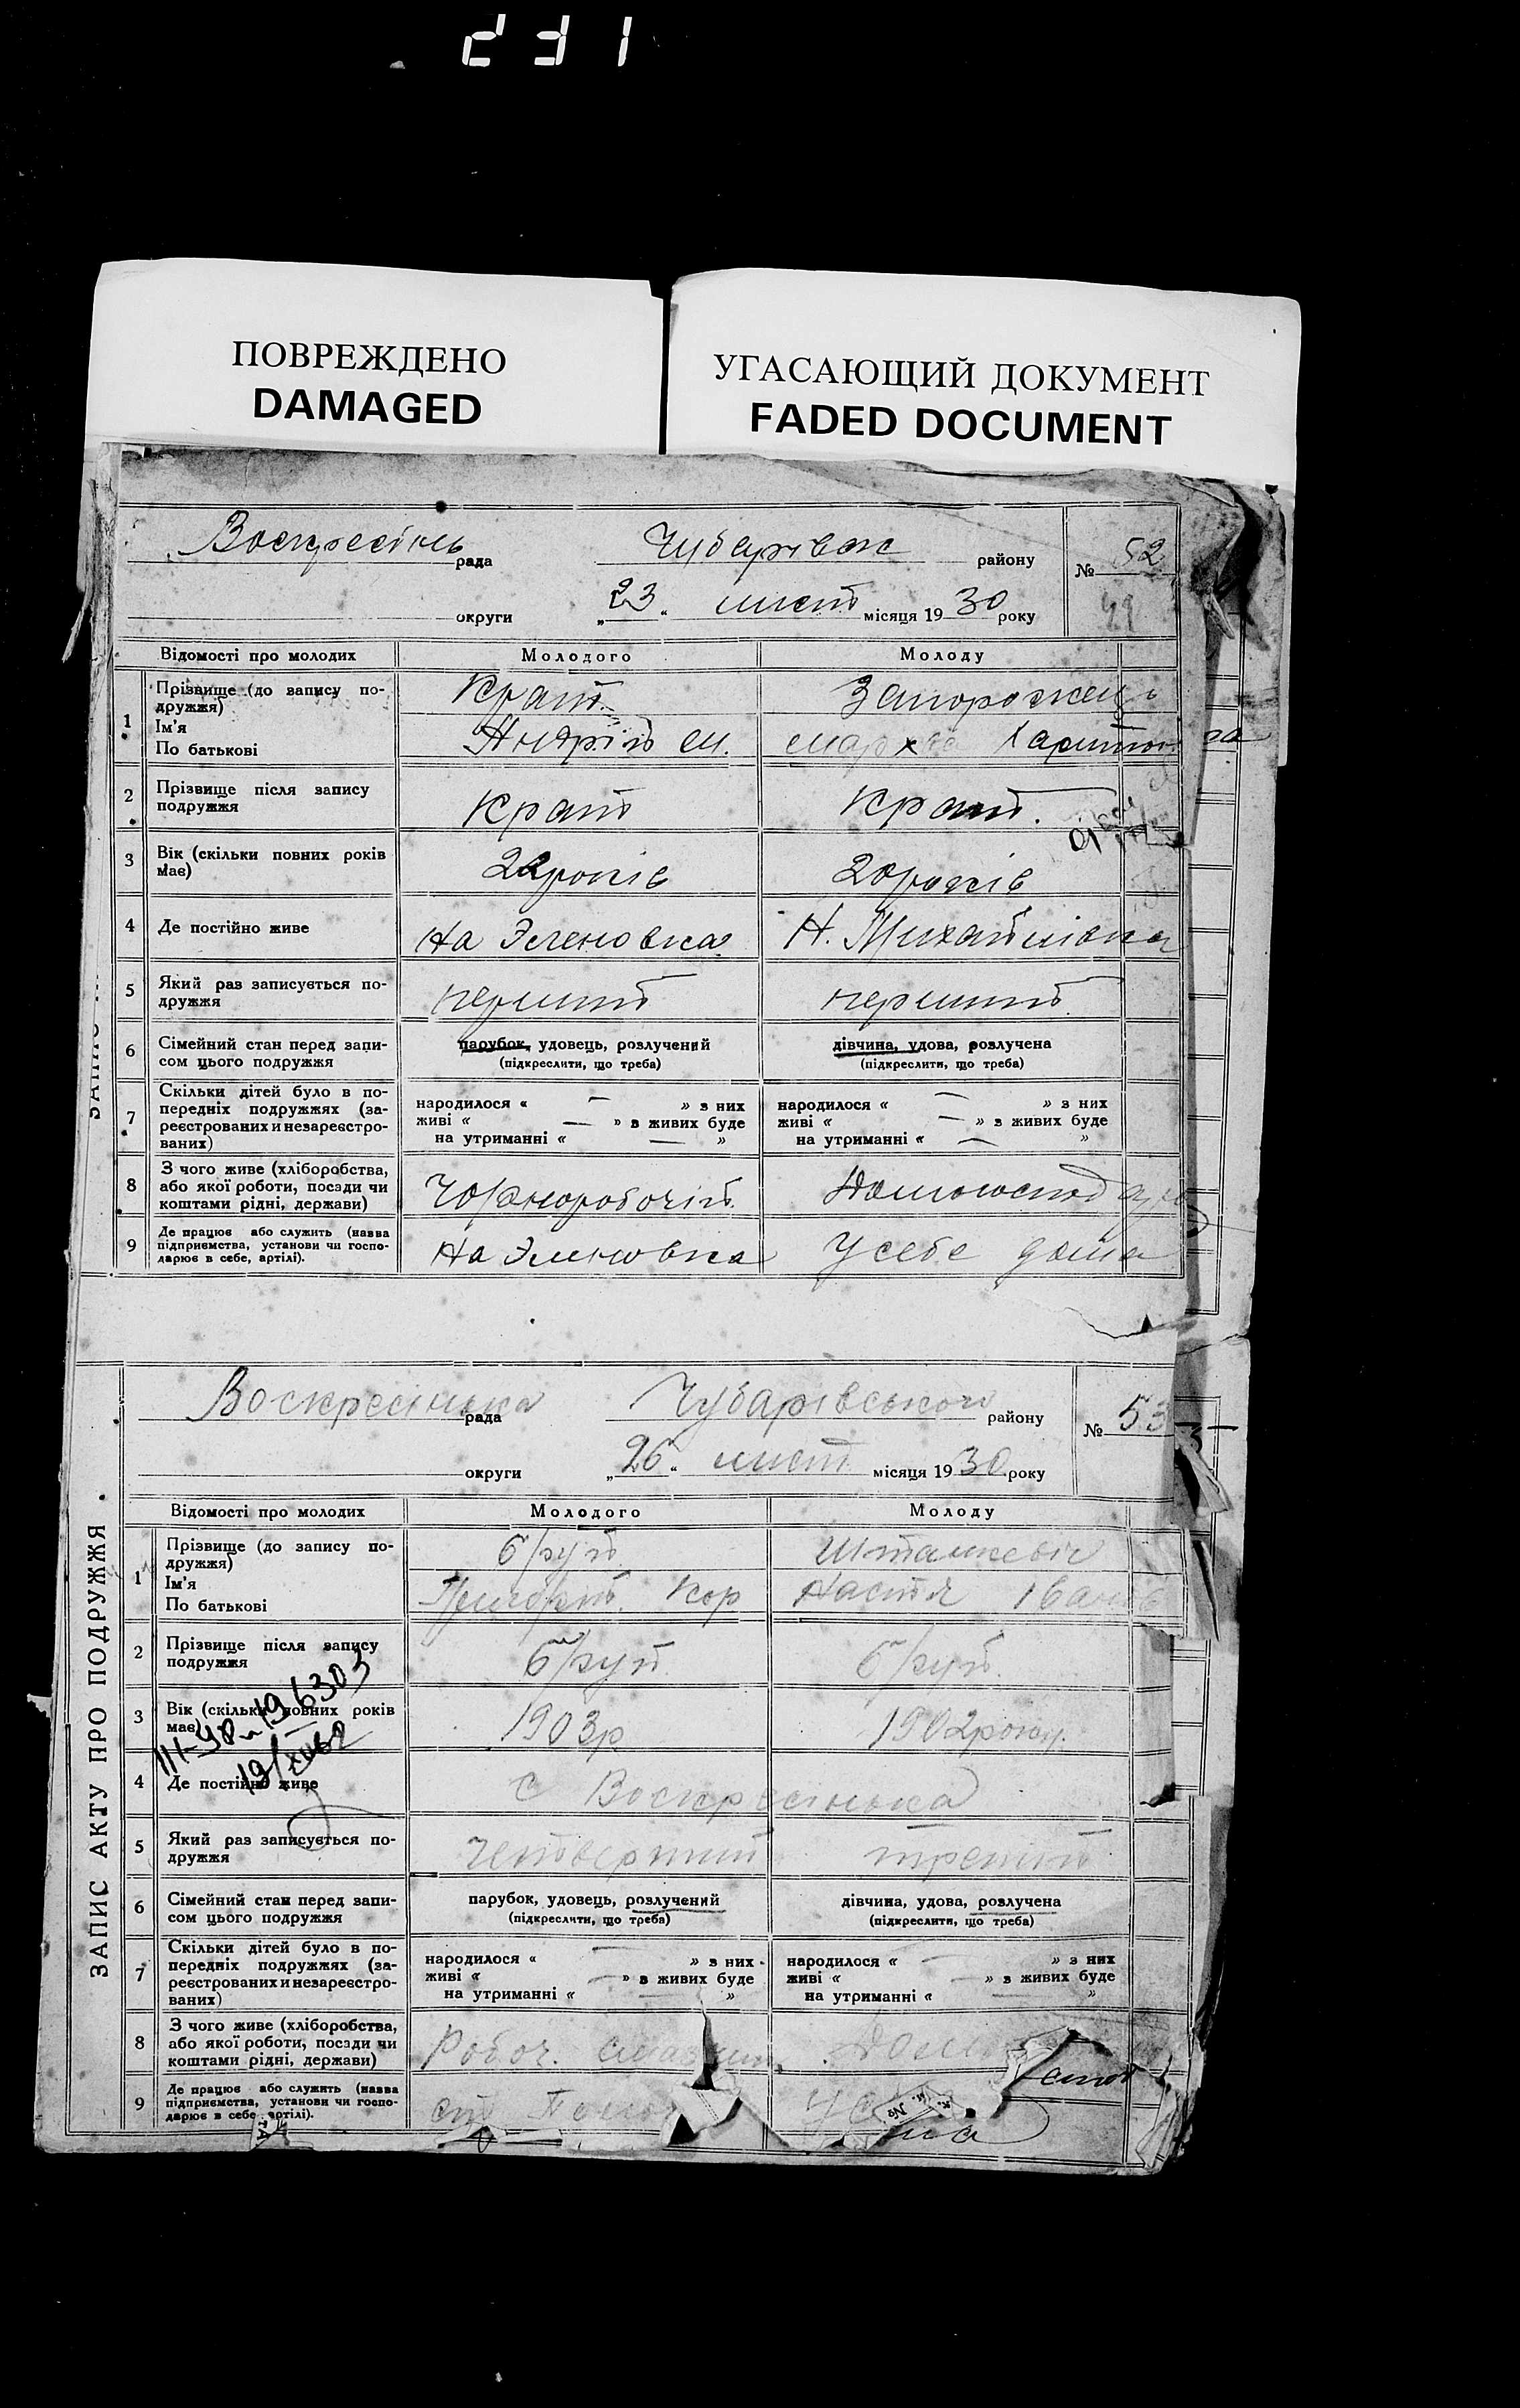 231
ПОВРЕЖДЕНО
DAMAGED
УГАСАЮЩИЙ ДОКУМЕНТ
FADED DOCUMENT
Воскресінь рада Чубарівск району № 52
округи „23“ лист місяця 1930 року
Відомості про молодих Молодого Молоду
1 Прізвище (до запису по-
дружжя) Крат Запорожець
Ім'я
По батькові Андрій М.
2 Прізвище після запису
подружжя Крат Крат
3 Вік (скільки повних років
має) 22 років 20 років
4 Де постійно живе На Эленовка Н. Михайлівка
5 Який раз записується по-
дружжя перший перший
6 Сімейний стан перед запи-
сом цього подружжя парубок, удовець, розлучений дівчина, удова, розлучена
(підкреслити, що треба) (підкреслити, що треба)
7 Скільки дітей було в по-
передніх подружжях (за-
реєстрованих и незареєстро-
ваних)
народилося « — » з них народилося « — » з них
живі « — » в живих буде живі « — » в живих буде
на утриманні « — » на утриманні « — »
8 З чого живе (хліборобства,
або якої роботи, посади чи
коштами рідні, держави) Чорноробочій
9 Де працює або служить (назва
підприємства, установи чи госпо-
дарює в себе, артілі). На Эленовка У себе дома
ЗАПИС АКТУ ПРО ПОДРУЖЖЯ
Воскресінька рада Чубарівського району № 53
округи „26“ лист місяця 1930 року
Відомості про молодих Молодого Молоду
1 Прізвище (до запису по-
дружжя)
Ім'я
По батькові Григорій Кор Настя Іванів
2 Прізвище після запису
подружжя
3 Вік (скільки повних років
має) 1903р 1902року
4 Де постійно живе с Воскресінька
5 Який раз записується по-
дружжя четвертий третій
6 Сімейний стан перед запи-
сом цього подружжя парубок, удовець, розлучений дівчина, удова, розлучена
(підкреслити, що треба) (підкреслити, що треба)
7 Скільки дітей було в по-
передніх подружжях (за-
реєстрованих и незареєстро-
ваних)
народилося « — » з них народилося « — » з них
живі « — » в живих буде живі « — » в живих буде
на утриманні « — » на утриманні « — »
8 З чого живе (хліборобства,
або якої роботи, посади чи
коштами рідні, держави) Робоч.
9 Де працює або служить (назва
підприємства, установи чи госпо-
дарює в себе, артілі).